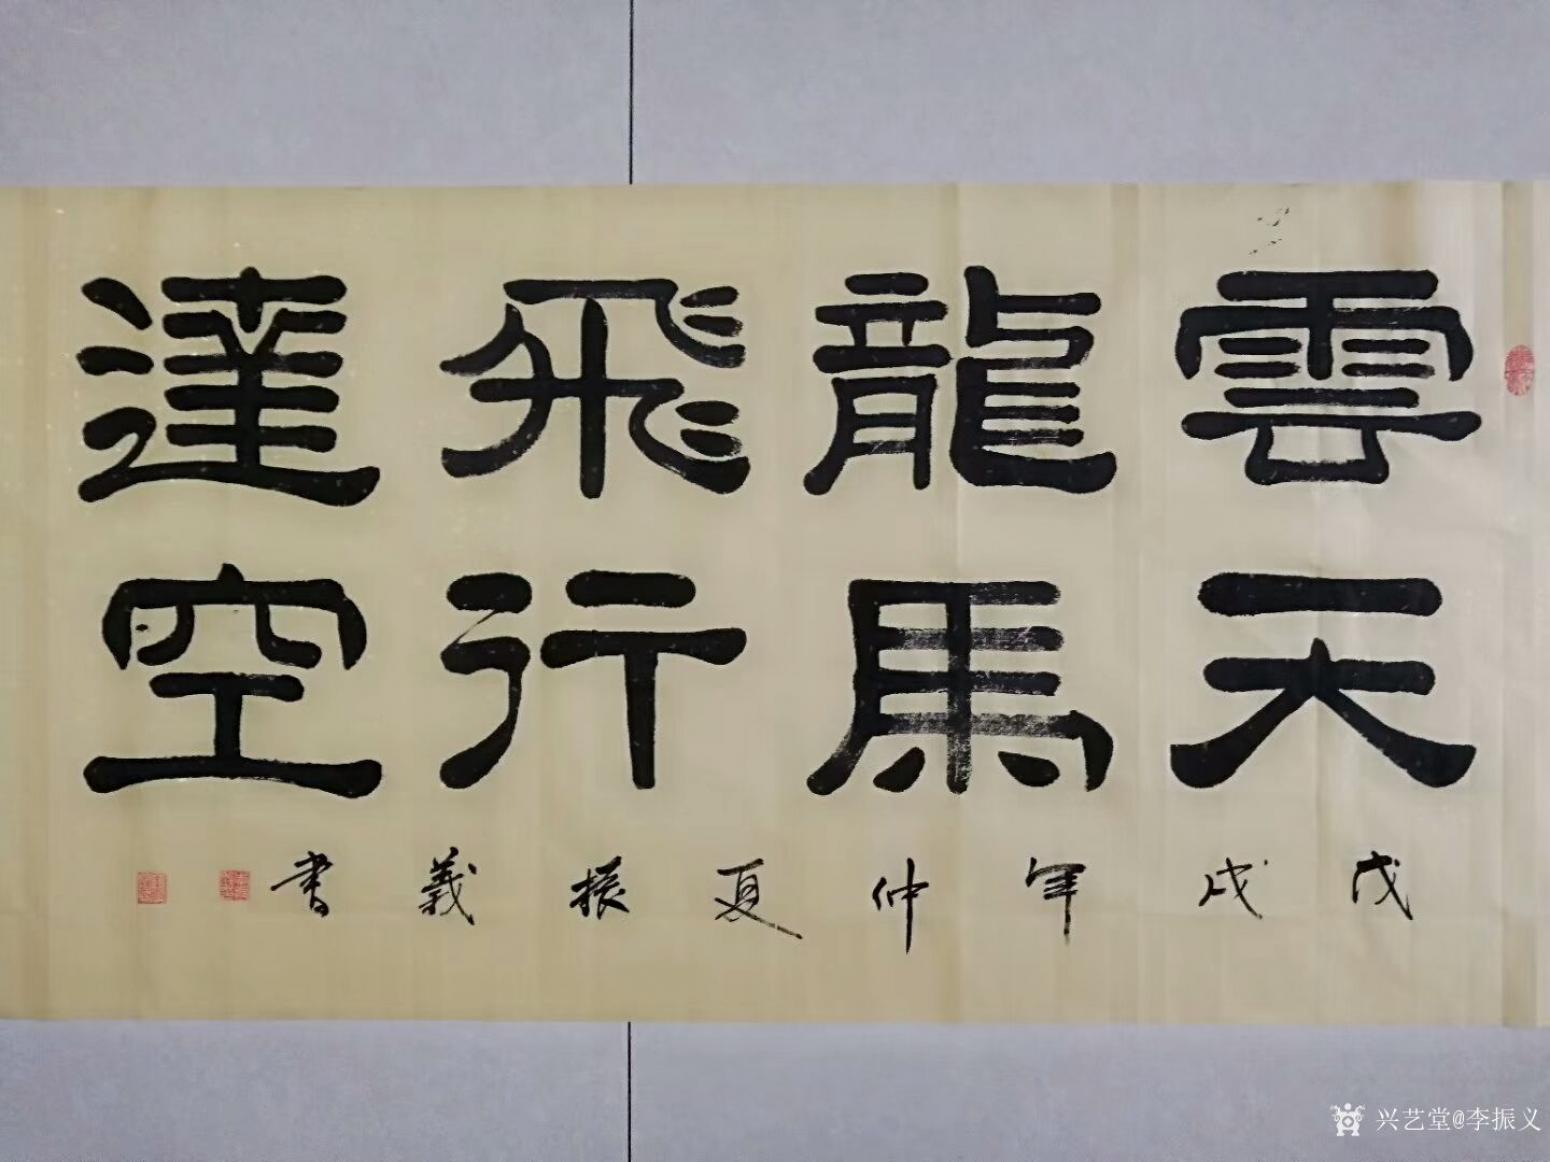 雲龍飛達
天馬行空
戊戌年仲夏振義書
兴艺堂@李振义